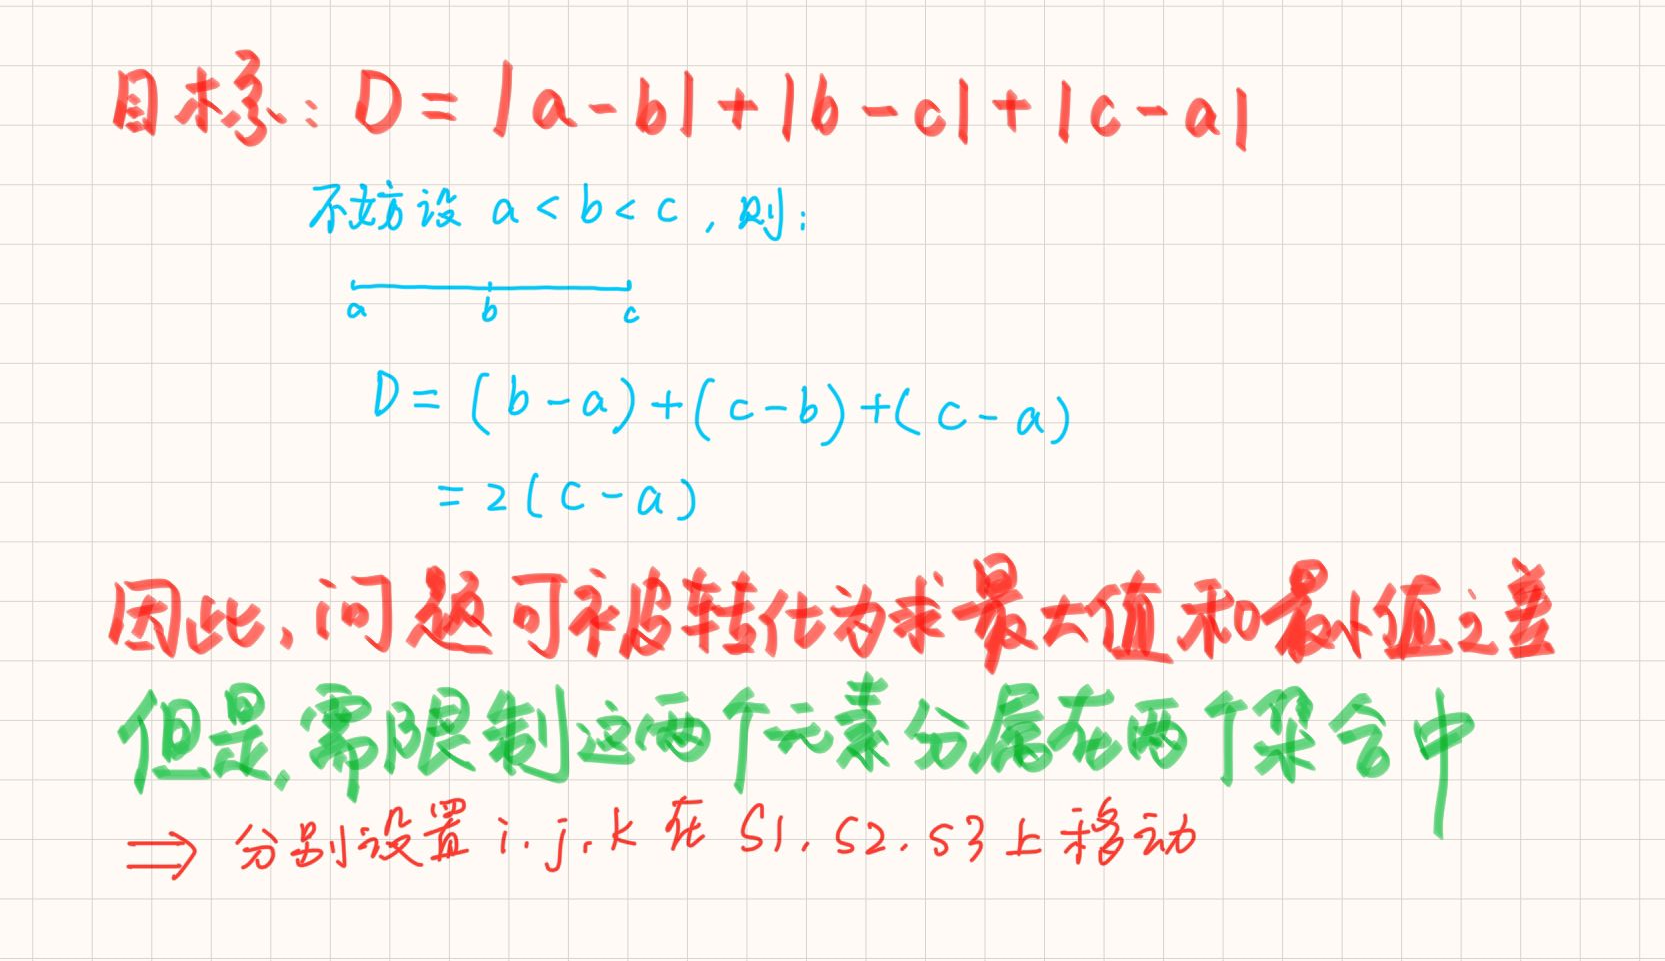 目标：D = |a-b|+|b-c|+|c-a|
不妨设 a<b<c，则：
a b c
D= (b-a)+(c-b)+(c-a)
=2(c-a)
因此，问题可被转化为求最大值和最小值之差
但是，需限制这两个元素分属在两个集合中
⇒ 分别设置 i.j.k 在 S1.S2.S3上移动